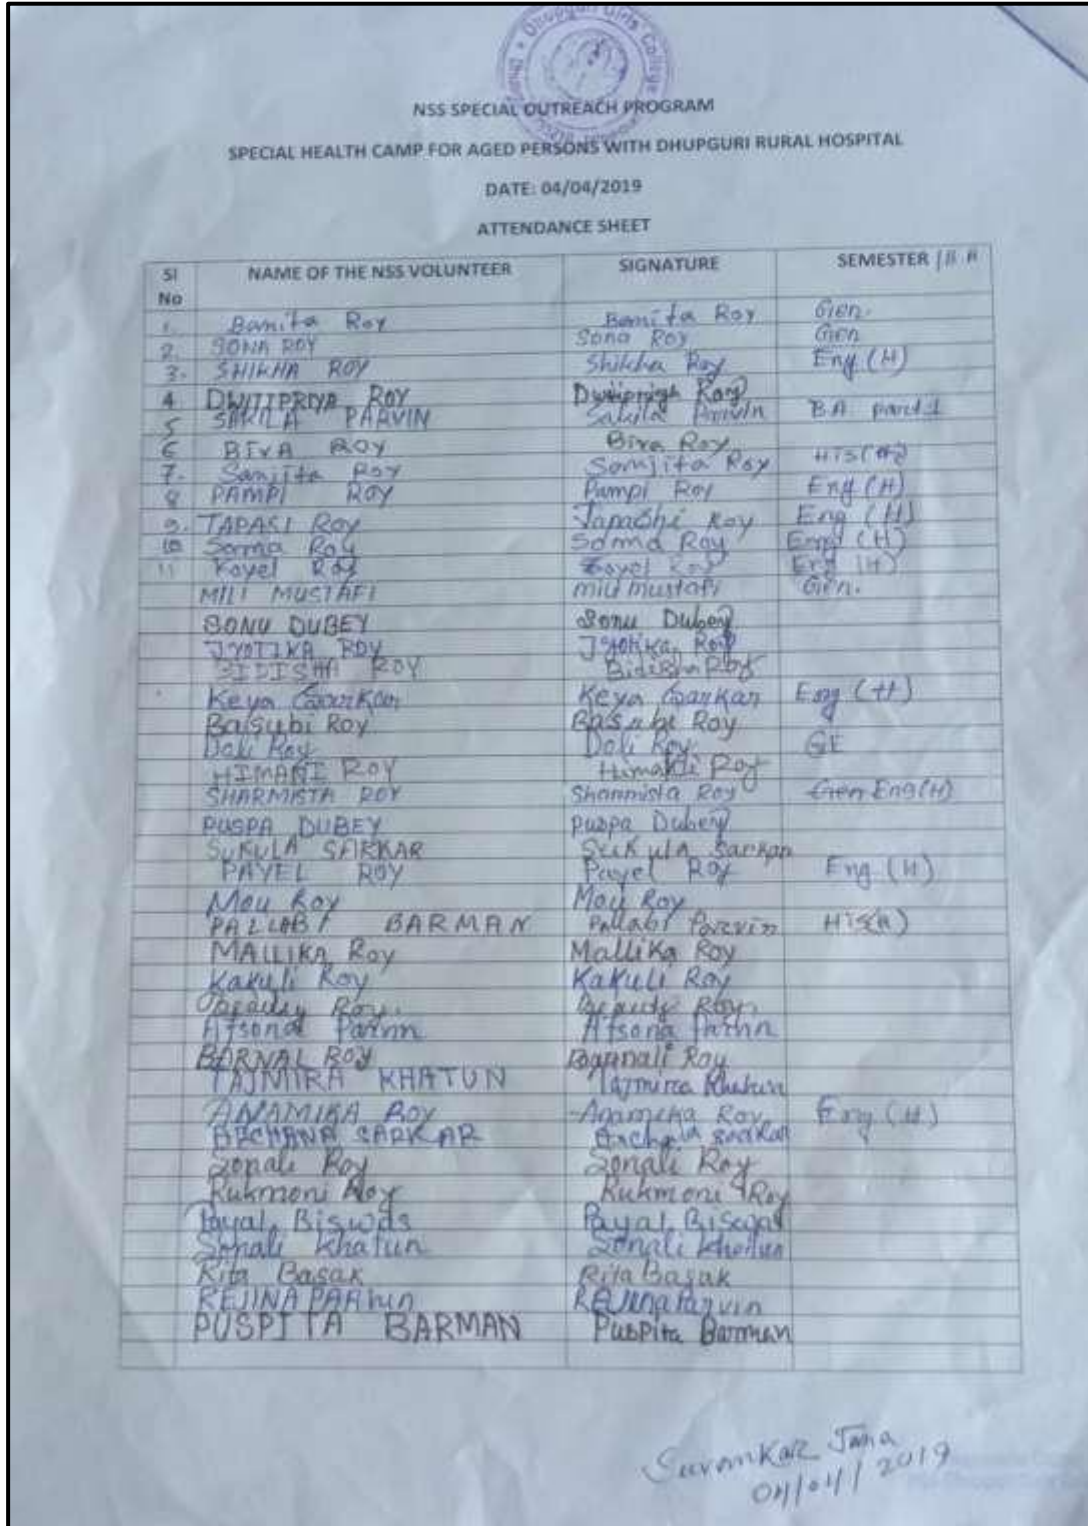 Dhupguri Girls College
NSS SPECIAL OUTREACH PROGRAM
SPECIAL HEALTH CAMP FOR AGED PERSONS WITH DHUPGURI RURAL HOSPITAL
DATE: 04/04/2019
ATTENDANCE SHEET
Sl No NAME OF THE NSS VOLUNTEER SIGNATURE SEMESTER
1. Banita Roy Banita Roy Gen.
2. SONA ROY Sona Roy Gen
3. SHIKHA ROY Shikha Roy Eng (H)
4 DWITIPRIYA ROY Roy
5 SAKILA PARVIN Sakila Parvin BA part 1
6 BIVA ROY Biva Roy
7. Sanjita Roy Sanjita Roy HIS(H)
8 PAMPI ROY Pampi Roy Eng (H)
9. TAPASI Roy Tapashi Roy Eng (H)
10 Soma Roy Soma Roy Eng (H)
11 Koyel Roy Koyel Roy Eng (H)
MILI MUSTAFI mili mustafi Gen.
SONU DUBEY Sonu Dubey
JYOTIKA ROY Jyotika Roy
BIDISHA ROY Bidisha Roy
Keya Sarkar Keya Sarkar Eng (H)
Basubi Roy Basubi Roy
Doli Roy Doli Roy GE
HIMANI ROY Roy
SHARMISTA ROY Sharmista Roy Gen Eng(H)
PUSPA DUBEY Puspa Dubey
SUKULA SARKAR Sukula Sarkar
PAYEL ROY Payel Roy Eng (H)
Mou Roy Mou Roy
PALLABI BARMAN Pallabi Parvin HIS(H)
MALLIKA Roy Mallika Roy
Kakuli Roy Kakuli Roy
Beauty Roy. Beauty Roy.
Afsona Afsona
BARNALI ROY Barnali Roy
TAJMIRA KHATUN Tajmira Khatun
ANAMIKA ROY Anamika Roy Eng (H)
ARCHANA SARKAR Archana Sarkar
Sonali Roy Sonali Roy
Rukmoni Roy Rukmoni Roy
Payal Biswas Payal Biswas
Sonali Khatun Sonali Khatun
Rita Basak Rita Basak
REJINA PARvin REJina Parvin
PUSPITA BARMAN Puspita Barman
Jana
04/04/2019